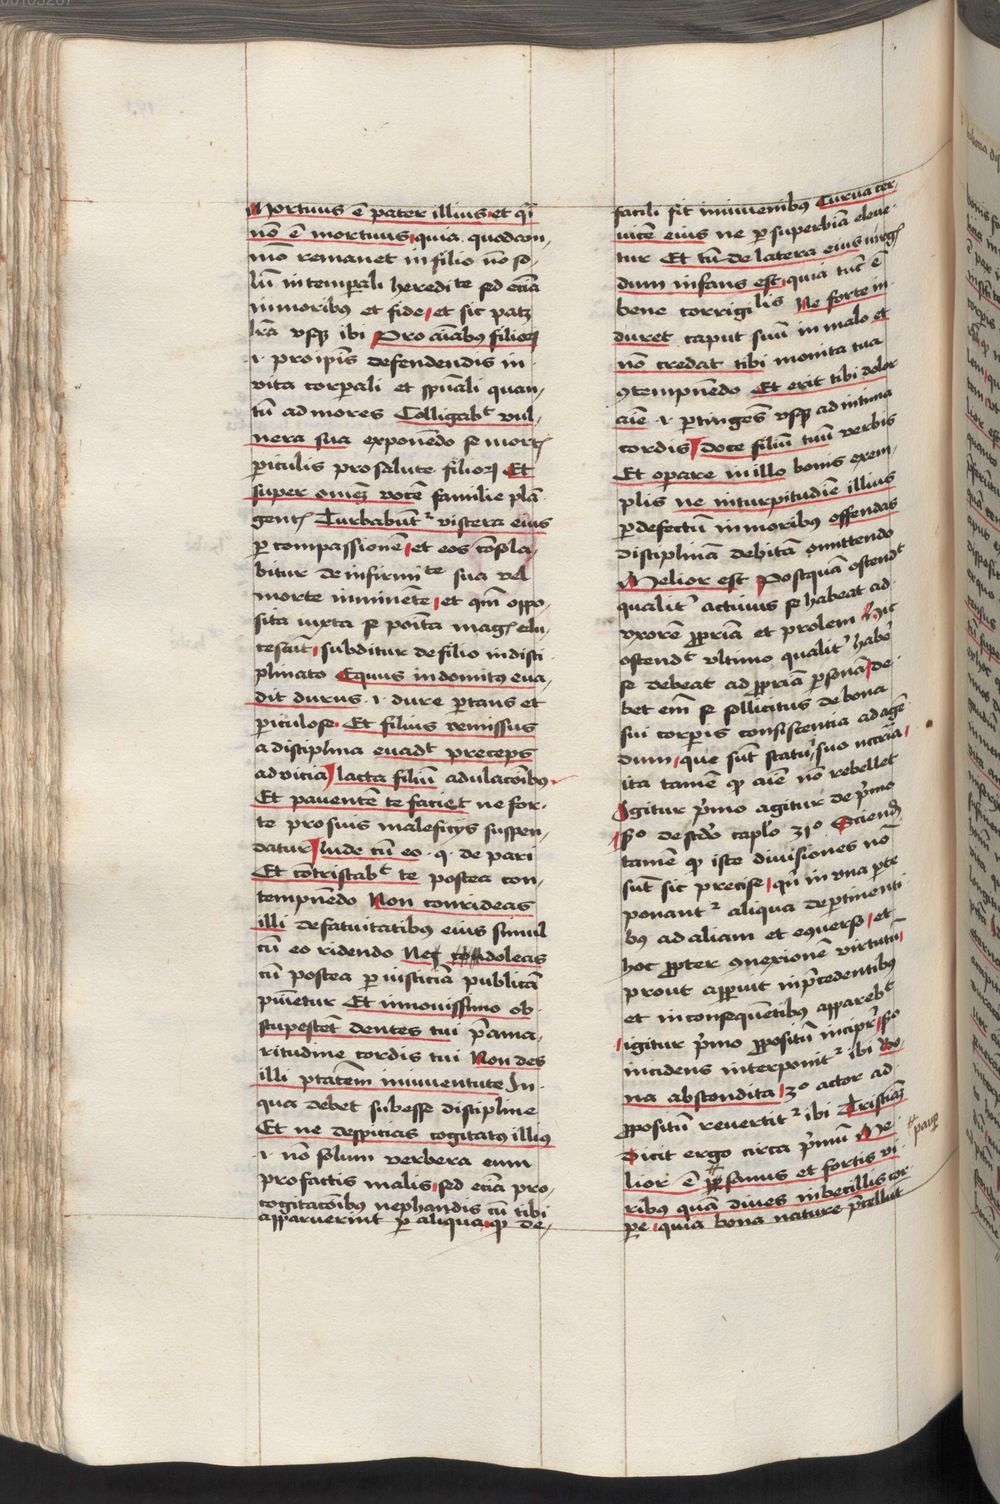 Mortuus ē pater illius et q̄si
nō ē mortuus quia quodam-
mō remanet in filio nō so-
lū in temp̲ali heredi te sed eciā
in moribus et fide et sic patz
lr̄a vsqz ibi Pro aīabus filioꝝ
.i. pro ip̄is defendendis in
vita corp̲ali et sp̄uali quan-
tū ad mores Colligabt vul-
nera sua exponēdo se mort
p̲iculis pro salute filioꝝ Et
super omnez vocē familie plā
gent Turbabūtr viscera eius
p̲ compassionē et eos cōsola-
bitur de infirmite sua vel
morte iminēte et qm̄ oppo-
sita iuxta se poīta maḡ elu-
cescūt subditur de filio indisci
plinato Equus indomitus eua-
dit durus .i. dure p̲tans et
p̲iculose Et filius remissus
a disciplina euadt preceps
ad vicia lacta filiū adulacōibus
Et pauentē te faciet ne for-
te pro suis maleficijs suspen-
datur lude cū eo .q. de pari
Et cōtristabt te postea con-
tempnēdo Non conrideas
illi de fatuitatibus eius simul
cū eo ridendo Nec doleas
cū postea p̲ iusticiā publicā
puīetur Et in nouissimo ob-
stupescēt dentes tui p̄ ama-
ritudine cordis tui Non des
illi ptātem in iuuentute In
qua debet subesse discipline
Et ne despicias cogitatus illius
.i. nō solum verbera eum
pro factis malis sed eciā pro
cogitacōibus nephandis cū tibi
apparuerint p̲ aliqua qz de-
facili fit in iuuenibus Curua cer-
uicē eius ne p̲ superbiā eleue-
tur Et tūde latera eius
dum infans est quia tūc ē
bene corrigi lis Ne forte in-
duret caput suū in malo et
nō credat tibi monita tua
ꝯtempnēdo Et erit tibi dolor
aīe .i. p̲tingēs vsqz ad intima
cordis doce filiū tuū verbis
Et operare in illo bonis exem-
plis ne in turpitudīē illius
p̲ defectū in moribus offendas
disciplinā debitā omittendo
Melior est Postquā ostendt
qualitr actiuus se habeat ad
vxorē ꝓpriā et prolem hic
ostendt vltimo qualitr habē
se debeat ad ꝓpriā p̲sonā de-
bet enī se sollicitus de bona
sui corp̲is consistentia ad agē
dum que sūt statui suo nccr̄ia
ita tamē qz aīe nō rebellet
Igitur p̄mo agitur de p̄mo
sͦ de scd̄o caplo 31ͦ Sciendū
tamē qz iste diuisiones nō
sūt sic precise qn̄ in vna p̲te
ponantr aliqua de p̲tinenti
bus ad aliam et eꝯuerso et
hoc ꝓpter ꝯnexionē virtutū
prout apparuit in p̄cedentibus
et in consequētibus apparebt
igitur p̄mo ꝓpositū incipr̄ sͦ
incidens interponitr ibi Bo-
na abscondita 3ͦ actor ad
ꝓpositū reuertitr ibi Tristiāz
Dicit ergo circa p̄mū Me-
lior ē sanus et fortis vi-
paup̲
ribus quā diues inbecillis cor-
p̲e quia bona nature p̄cellūt